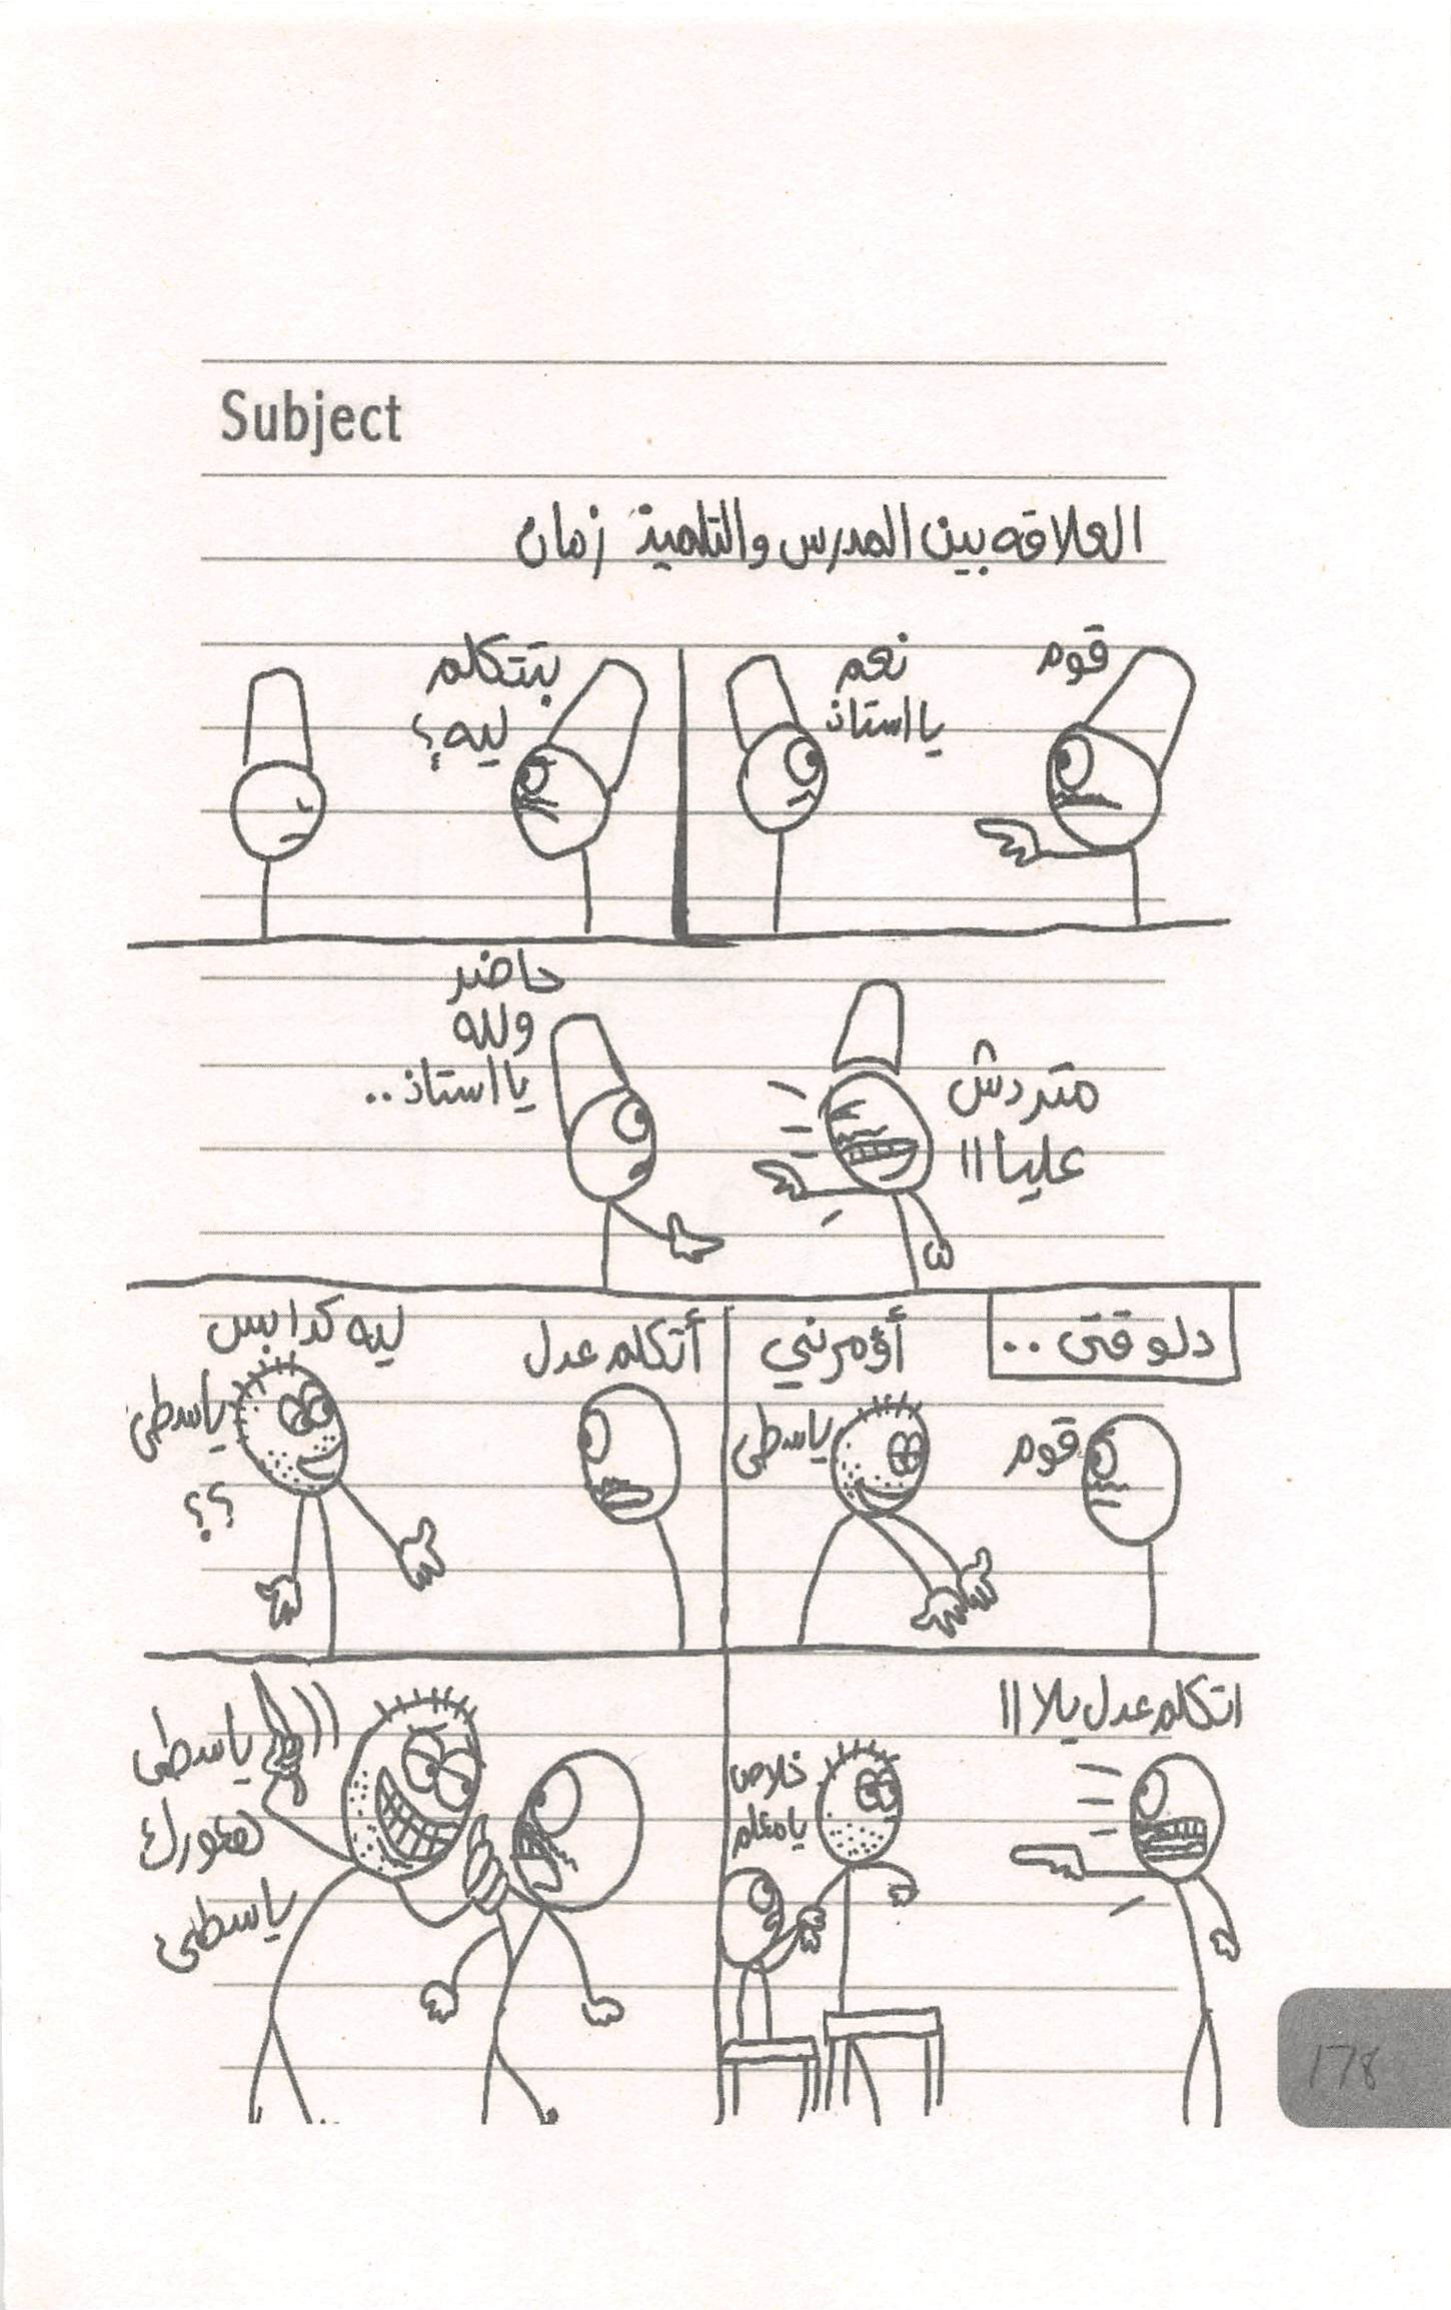 Subject
العلاقه بين المدرس والتلميذ زمان
قوم
نعم
يا استاذ
بتتكلم
ليه؟
متردش
عليا !!
حاضر
ولله
يا استاذ..
دلوقتى ..
قوم
أؤمرني
ياسطى
أتكلم عدل
ليه كدا بس
ياسطى
؟؟
اتكلم عدل يلا !!
خلاص
يا معلم
ياسطى
هعورك
ياسطى
178